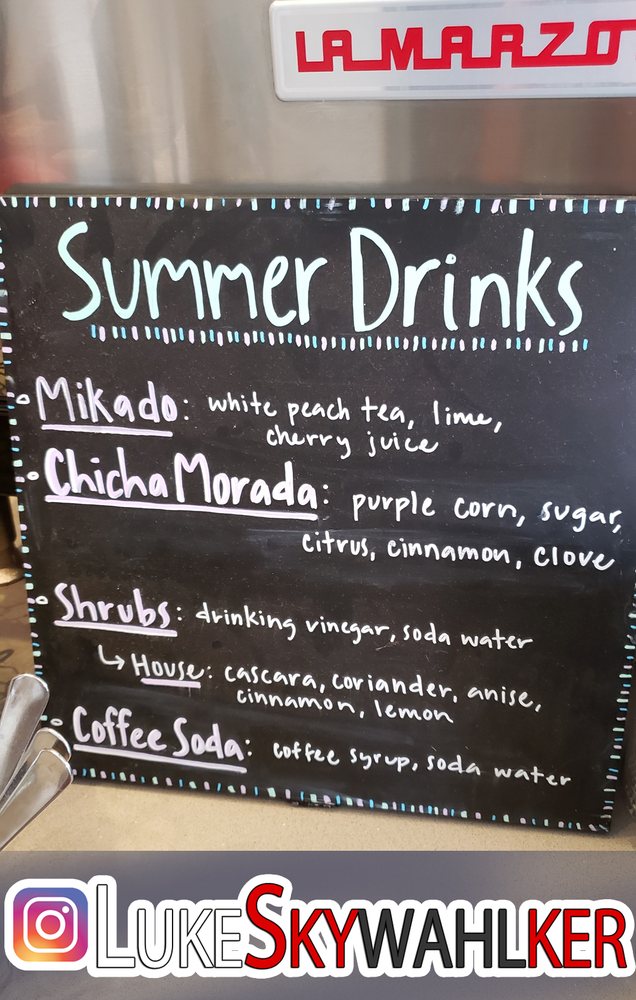 LA MARZO
Summer Drinks
Mikado: white peach tea, lime,
cherry juice
Chicha Morada: purple corn, sugar,
citrus, cinnamon, clove
Shrubs: drinking vinegar, soda water
↳ House: cascara, coriander, anise,
cinnamon, lemon
Coffee Soda: coffee syrup, soda water
LUKESKYWAHLKER